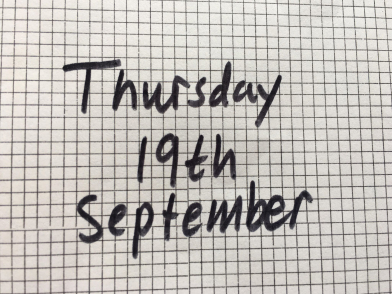 Thursday
19th
September